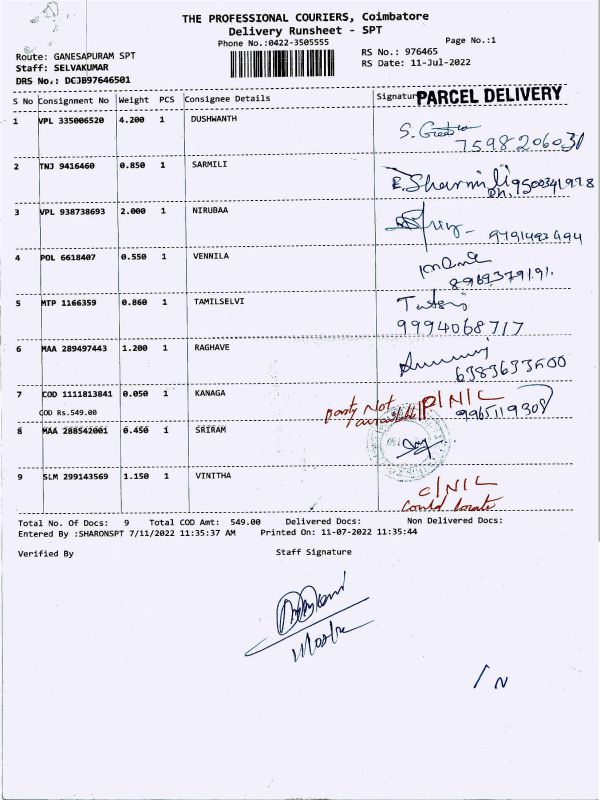 THE PROFESSIONAL COURIERS, Coimbatore
Delivery Runsheet - SPT
Phone No.:0422-3505555
Page No.:1
Route: GANESAPURAM SPT
RS No.: 976465
Staff: SELVAKUMAR
RS Date: 11-Jul-2022
DRS No.: DCJB97646501
PARCEL DELIVERY
S No Consignment No Weight PCS Consignee Details
1 VPL 335006520 4.200 1 DUSHWANTH
7598206030
2 TNJ 9416460 0.850 1 SARMILI
3 VPL 938738693 2.000 1 NIRUBAA
4 POL 6618407 0.550 1 VENNILA
5 MTP 1166359 0.860 1 TAMILSELVI
9994068717
6 MAA 289497443 1.200 1 RAGHAVE
6383633500
7 COD 1111813841 0.050 1 KANAGA
COD Rs.549.00
party Not P/N/L
9965119308
8 MAA 288542001 0.450 1 SRIRAM
9 SLM 299143569 1.150 1 VINITHA
C/N/L
Total No. Of Docs: 9 Total COD Amt: 549.00 Delivered Docs: Non Delivered Docs:
Entered By :SHARONSPT 7/11/2022 11:35:37 AM Printed On: 11-07-2022 11:35:44
Verified By Staff Signature